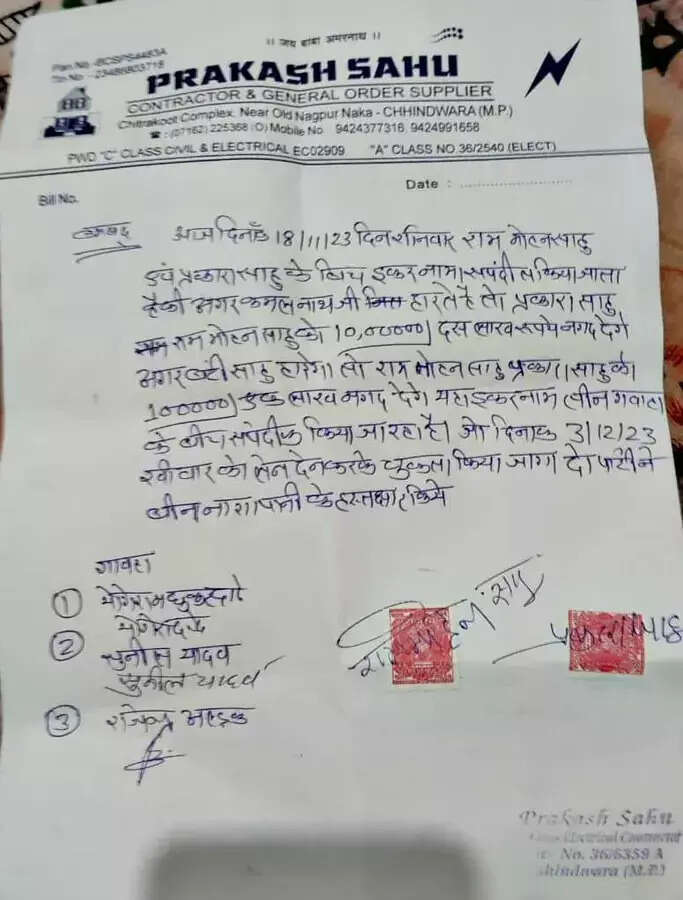 ॥ जय बाबा अमरनाथ ॥
Pan No -BCSPS4483A
Tin No - 23486803718
PRAKASH SAHU
CONTRACTOR & GENERAL ORDER SUPPLIER
Chitrakoot Complex, Near Old Nagpur Naka - CHHINDWARA (M.P.)
☎ : (07162) 225368 (O) Mobile No. 9424377316, 9424991658
PWD "C" CLASS CIVIL & ELECTRICAL EC02909 "A" CLASS NO.36/2540 (ELECT)
Bill No.
Date :
आज दिनाँक 18/11/23 दिन शनिवार राम मोहन साहु
एवं प्रकाश साहु के बिच इकरनामा किया जाता
है की अगर कमलनाथ जी हारते है तो प्रकाश साहु
राम मोहन साहु को 10,00000/ दस लाख रूपये नगद देगे
अगर बंटी साहु हारेगा तो राम मोहन साहु प्रकाश साहु को
100000/ एक लाख नगद देगे यहा इकरनाम तीन गवाहा
के बीच किया जा रहा है। जो दिनाक 3/12/23
रवीवार को लेन देन करके किया जागा दो पार्टी ने
के हस्ताक्षर किये
गावहा
①
② सुनील यादव
सुनील यादव
③
राम मोहन साहु
प्रकाश साहु
Prakash Sahu
Electrical Contractor
No. 36/6359 A
Chhindwara (M.P.)